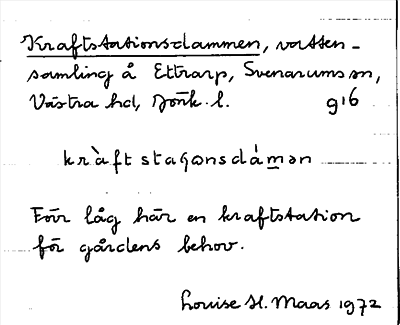 Kraftstationsdammen, vatten-
samling å Ettrarp, Svenarums sn,
Västra hd, Jönk. l. 9¹6
kràftstaʃonsdámən
Förr låg här en kraftstation
för gårdens behov.
Louise H. Maas 1972